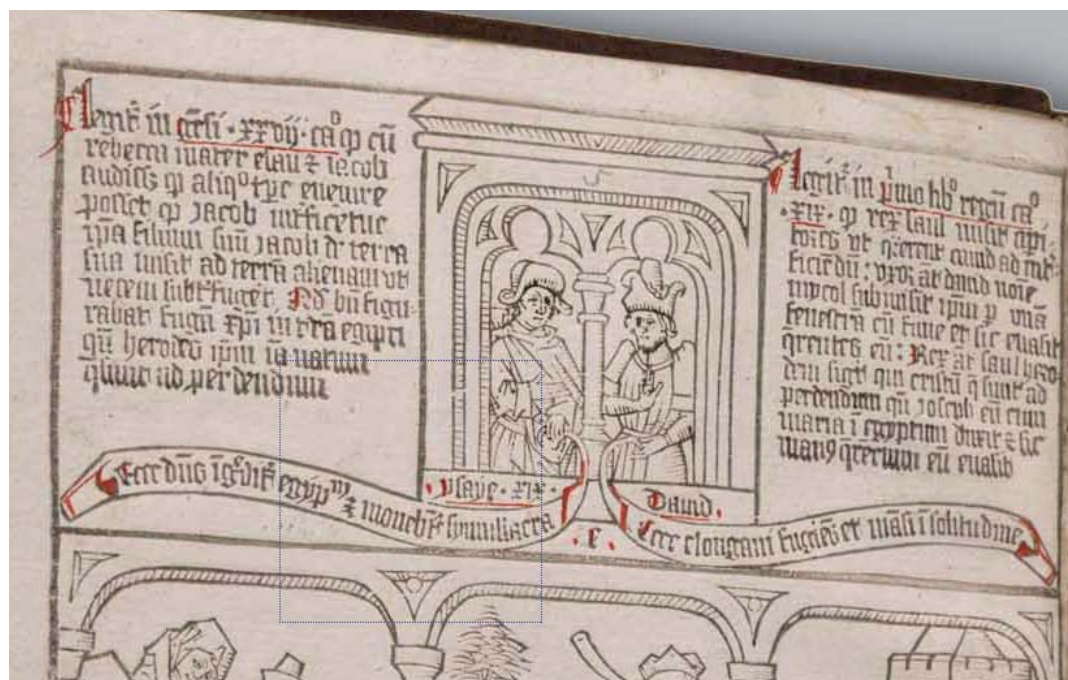 Legit̄ in gēn̄si · xxvij · ca° ꝙ cū
rebecca mater esau ꝛ iacob
audiss ꝙ aliq° tp̄e euenire
posset ꝙ Jacob int̄ficetur
ip̄a filium suū Jacob de terra
sua misit ad terrā alienam vt
necem subt̄fuget̄ Nd̄ bn̄ figu-
rabat fugā xp̄i in t̄rā egipti
qn̄ herodes ip̄m iā natum
quiuit ad perdendum
Legit̄ in p̄mo lib° regū ca°
· XIX · ꝙ rex saul misit apꝑi-
tores vt q̄rerent dauid ad int̄-
ficiēdū : vxor at̄ dauid noīe
mycol submisit ip̄m ꝑ vnā
fenestrā cū fune et sic euasit
q̄rentes eū : Rex at̄ saul hero-
dem sigt̄ qui cristū q̄siuit ad
perdendum qn̄ ioseph eū cum
maria ī egyptum duxit ꝛ sic
man9 q̄rentium eū euasit
ysaye · xix ·
Dauid .
Ecce dn̄s īgͣdit̄ egypᵐ ꝛ mouebūt̄ symulacra
· e ·
Ecce elongaui fugiēs et māsi ī solitudine